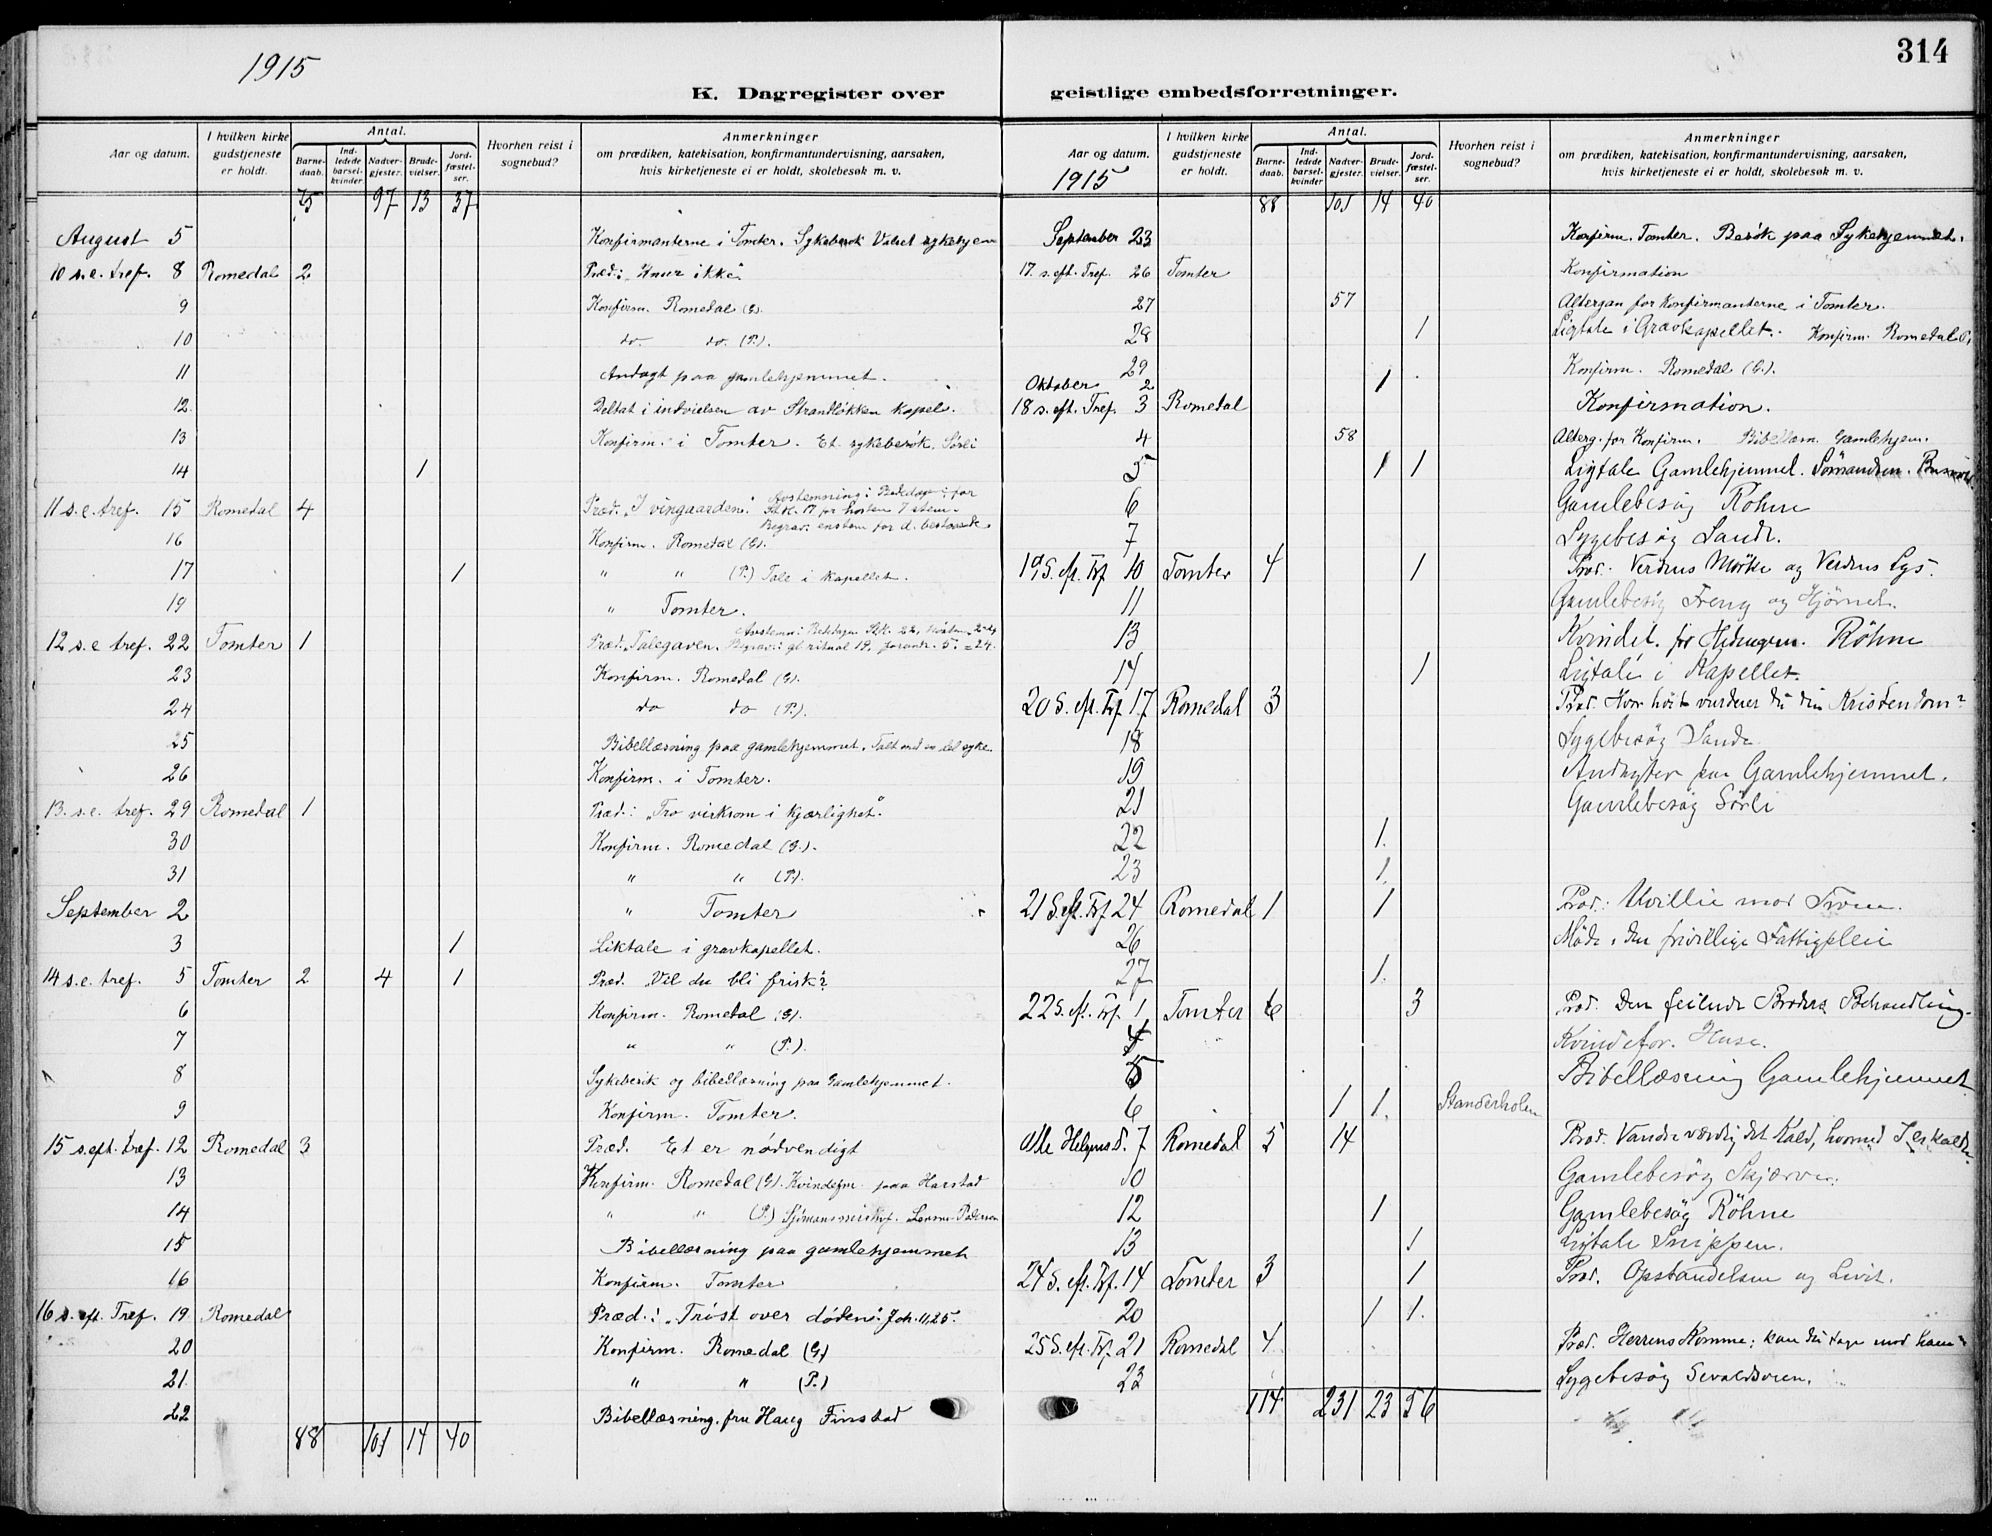 1915
314
K. Dagregister over geistlige embedsforretninger.
Aar og datum. | I hvilken kirke gudstjeneste er holdt. | Antal. Barnedaab. | Indledede barselkvinder | Nadvergjester. | Brudevielser. | Jordfæstelser. | Hvorhen reist i sognebud? | Anmerkninger om prædiken, katekisation, konfirmantundervisning, aarsaken, hvis kirketjeneste ei er holdt, skolebesøk m. v.
75 97 13 37
August 5 Konfirmanterne i Tomter. Sykebesøk Valset sykehjem
10 s.e. tref. 8 Romedal 2 Præd: "Knur ikke"
9 Konfirm. Romedal (G).
10 do. do. (P.).
11 Andagt paa gamlehjemmet.
12. Deltat i indvielsen av Strandløkken kapel.
13 Konfirm. i Tomter. Et sykebesøk. Sørli
14 1
11 s.e. tref. 15 Romedal 4 Præd. "I vingaarden". Avstemning: Bededag: for
17 for høsten 7 stem.
Begrav: enstem for d. bestaaende
16 Konfirm. Romedal (G).
17 1 " " (P.) Tale i kapellet.
19 " Tomter.
12 s.e tref. 22 Tomter 1 Præd. "Talegaven. Avstemn: Bededagen 22, høsten 2
Begrav: gl ritual 19, forandr. 5. = 24.
23 Konfirm. Romedal (G).
24 do do (P.).
25 Bibellæsning paa gamlehjemmet. Talt med en del syke
26 Konfirm. i Tomter.
13. s.e. tref. 29 Romedal 1 Præd.: "Tro virksom i kjærlighet."
30 Konfirm. Romedal (G.).
31 " " (P.).
September 2 " Tomter
3 1 Liktale i gravkapellet.
14 s.e. tref. 5 Tomter 2 4 1 Præd. "Vil du bli frisk"?
6 Konfirm. Romedal (G).
7 " " (P.).
8 Sykebesøk og bibellæsning paa Gamlehjemmet.
9 Konfirm. Tomter.
15 s.eft. tref. 12 Romedal 3 Præd. Et er nødvendigt
13 Konfirm. Romedal (G). Kvindefor. paa Harstad
14 " " (P.) Sjømansmis
15 Bibellæsning paa gamlehjemmet
16 Konfirm. Tomter
16 s. eft. Tref. 19 Romedal Præd.: "Trøst over døden". Joh. 11,25.
20 Konfirm. Romedal (G.)
21 " " (P.)
22 Bibellæsning. fru Haug Finstad
88 101 14 40
Aar og datum. | I hvilken kirke gudstjeneste er holdt. | Antal. Barnedaab. | Indledede barselkvinder | Nadvergjester. | Brudevielser. | Jordfæstelser. | Hvorhen reist i sognebud? | Anmerkninger om prædiken, katekisation, konfirmantundervisning, aarsaken, hvis kirketjeneste ei er holdt, skolebesøk m. v.
1915
88 101 14 40
September 23 Konfirm. Tomter. Besøk paa Sykehjemmet.
17. s. eft. Tref. 26 Tomter Konfirmation
27 57 Altergan for Konfirmanterne i Tomter.
28 1 Ligtale i Gravkapellet. Konfirm. Romedal P.
29 Konfirm. Romedal (G.).
Oktober 2 1
18 s. eft. Tref. 3 Romedal Konfirmation.
4 58 Alterg. for Konfirm. Bibellæsn. Gamlehjem.
5 1 1 Ligtale Gamlehjemmet. Sømandsm.
6 Gamlebesøg Røhne
7 Sygebesøg Sande.
19 S. eft. Trf. 10 Tomter 4 1 Præd. Verdens Mørke og Verdens Lys.
11 Gamlebesøg Freng og Hjørnet.
13 Kvindef. for Hedningem. Røhne
14 1 Ligtale i Kapellet.
20 S. eft. Trf 17 Romedal 3 Præd. Hvor høit vurderer du din Kristendom?
18 Sygebesøg Sande
19 Andagter paa Gamlehjemmet.
21 Gamlebesøg Sørli
22 1.
23 1.
21 S. eft. Trf. 24 Romedal 1 1 Præd.: Uvillie mod Troen.
26 Møde i den frivillige Fattigpleie
27 1.
22 S. eft. Trf. 1 Tomter 6 3 Præd. Den feilende Broders Behandling.
4 Kvindefor. Huse.
5 Bibellæsning Gamlehjemmet
6 1 1. Standerholen
Alle Helgens D. 7 Romedal 5 14 Præd. Vandre værdig det Kald, hvormed I er kaldte.
10 Gamlebesøg Skjærve.
12 1 Gamlebesøg Røhne
13 1 Ligtale Snippen.
24 S. eft. Trf. 14 Tomter 3 1 Præd. Opstandelsen og Livet.
20 1 1.
25 S. eft. Trf. 21 Romedal 4 Præd. Herrens Komme; kan du tage mod ham?
23 Sygebesøg Sevaldsveen.
114 231 23 56